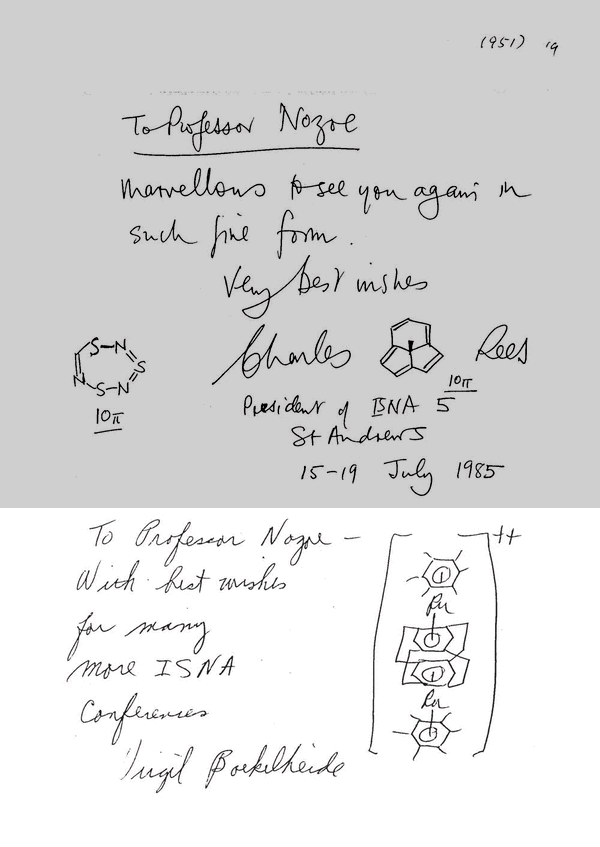 (951) 19
To Professor Nozoe
marvellous to see you again in
such fine form.
Very best wishes
Charles Rees
S-N
S
N S-N
10π
10π
President of ISNA 5
St Andrews
15-19 July 1985
To Professor Nozoe -
With best wishes
for many
more ISNA
Conferences
Virgil Boekelheide
++
Ru
Ru